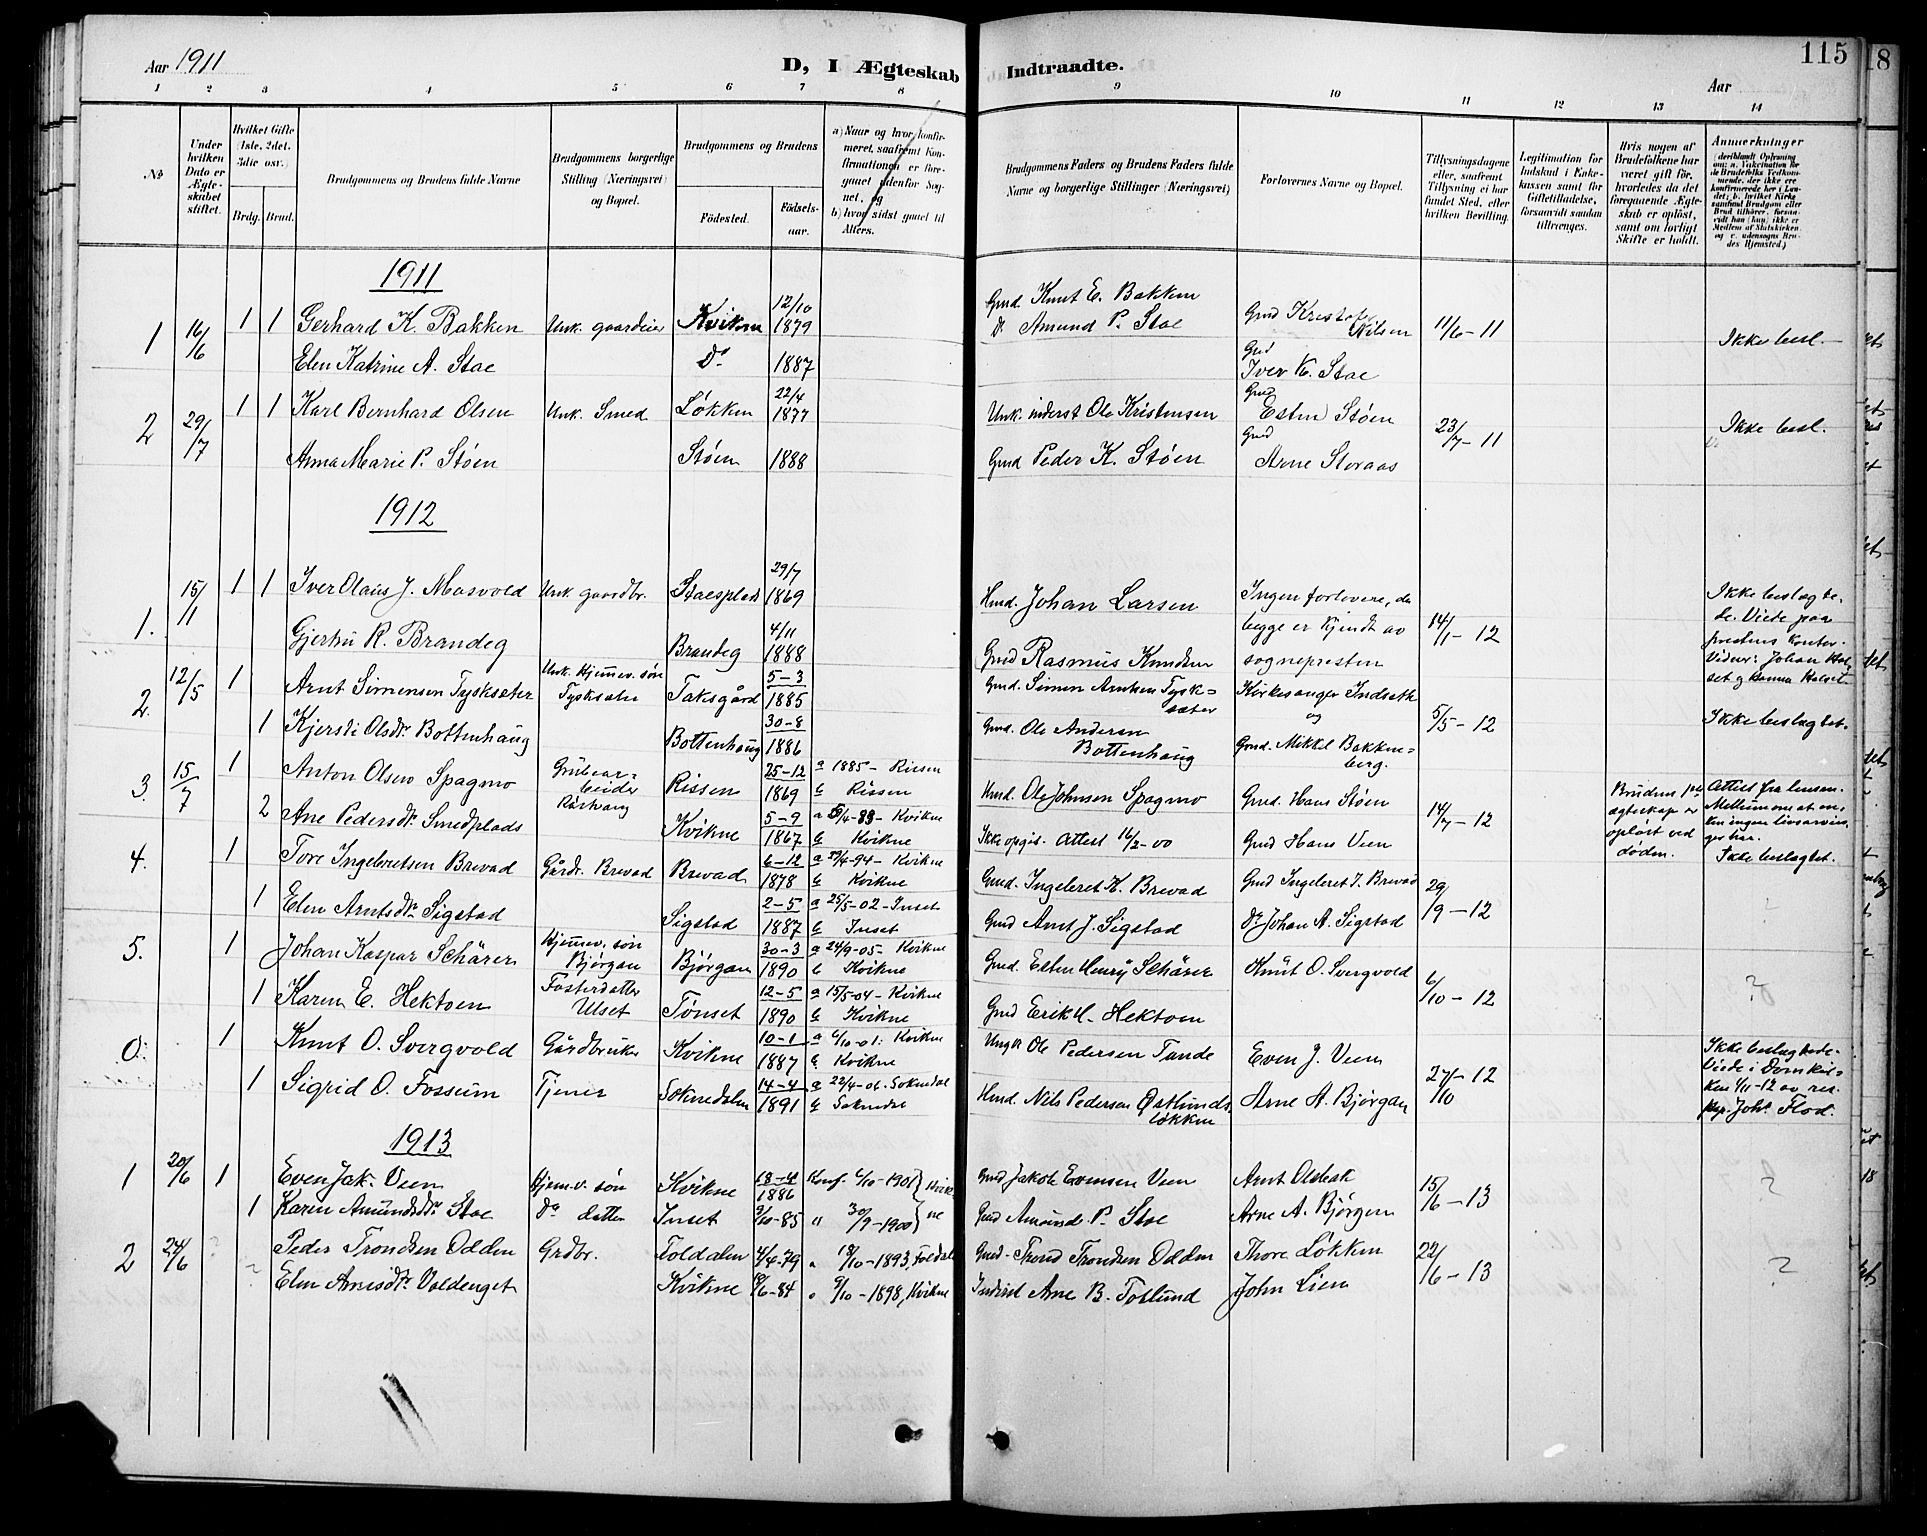 Aar 1911
D, I Ægteskab Indtraadte.
Aar
115
18
1 2 3 4 5 6 7 8 9 10 11 12 13 14
No
Under hvilken Dato er Ægteskabet stiftet.
Hvilket Gifte (1ste, 2det, 3die osv.)
Brdg. Brud.
Brudgommens og Brudens fulde Navne
Brudgommens borgerlige Stilling (Næringsvei) og Bopæl.
Brudgommens og Brudens
Födested. Födselsaar.
a) Naar og hvor konfirmeret, saafremt Konfirmationen er foregaaet udenfor Sognet, og
b) hvor sidst gaaet til Alters.
Brudgommens Faders og Brudens Faders fulde Navne og borgerlige Stillinger (Næringsvei)
Forlovernes Navne og Bopæl.
Tillysningsdagene eller, saafremt Tillysning ei har fundet Sted, efter hvilken Bevilling.
Legitimation for Indskud i Enkekassen samt for Giftetilladelse, forsaavidt saadan tiltrænges.
Hvis nogen af Brudefolkene har været gift før, hvorledes da det foregaaende Ægteskab er opløst, samt om lovligt Skifte er holdt.
Anmerkninger
1911
1 16/6 1 1 Gerhard K. Bakken Unk. gaardeier Kvikne 12/10 1879 Gmd. Knut E. Bakken Gmd Kristofer Nilsen 11/6-11 Ikke besl.
Elen Katrine A. Stae Do 1887 Do Amund P. Stae Gmd Iver K. Stae
2 29/7 1 1 Karl Bernhard Olsen Unk. Smed Løkken 22/4 1877 Unk. inderst Ole Kristensen Gmd Esten Støen 23/7-11 Ikke besl.
Anna Marie P. Støen Støen 1888 Gmd Peder K. Støen Gmd Arne Storaas
1912
1. 15/11 1 1 Iver Olaus J. Mosvold Unk. gaardbr. Staesplads 29/7 1869 Hmd. Johan Larsen Ingen forlovere, da begge er kjendt av sognepresten 14/1-12 Ikke beslægtede. Viede paa prestens kontor. Vidner: Johan
Gjertru R. Brandeg Brandeg 4/11 1888 Gmd Rasmus Knudsen
2. 12/5 1 Arnt Simensen Tysksæter Unk. Hjemmev. søn Tysksæter Taksgård 5-3 1885 Gmd. Simen Arntsen Tysksæter Kirkesanger Indseth og 5/5-12 Ikke beslægtet.
1 Kjersti Olsdtr Bottenhaug Bottenhaug 30-8 1886 Gmd. Ole Andersen Bottenhaug Gmd. Mikkel Bakkneberg.
3. 15/7 1 Anton Olsen Spagmo Grubearbeider Røstvang Rissen 25-12 1869 a 1885 - Rissen b Rissen Hmd. Ole Johnsen Spagmo Gmd. Hans Støen 14/7-12
2 Ane Pedersdtr Smedplads Kvikne 5-9 1867 b Kvikne Ikke opgit. Attest 16/2-00 Gmd Hans Veen
4. 1 Tore Ingebretsen Brevad Gårdr. Brevad Brevad 6-12 1878 b Kvikne Gmd. Ingebret K. Brevad Gmd Ingebret T. Brevad 29/9-12 Ikke beslægtet.
1 Elen Arntsdtr Sigstad Sigstad 2-5 1887 a 25/5-02 - Inset b Inset Gmd Arnt J. Sigstad Do Johan A. Sigstad
5. 1 Johan Kaspar Schärer Hjemmev. søn Bjørgan Bjørgan 30-3 1890 a 24/9-05 - Kvikne b Kvikne Gmd. Esten Henry Schärer Knut O. Svergvold 6/10-12 ?
1 Karen E. Hektoen Fosterdatter Ulset Tønset 12-5 1890 a 15/5-04 - Kvikne b Kvikne Gmd Erik H. Hektoen
0. 1 Knut O. Svergvold Gårdbruker Kvikne 10-1 1887 a 6/10-01. Kvikne b Kvikne Ungk Ole Pedersen Tande Even J. Veen 27/10-12 Ikke beslægtede. Viede i Domkirken 4/11-12 av res. kap. Johs. Flod.
1 Sigrid O. Fossum Tjener Soknedalen 14-4 1891 b Soknedal Hmd. Nils Pedersen Østlundsløkken Arne A. Bjørgan
1913
1 20/6 1 Even Jak. Veen Hjem.v. søn Kvikne 18-4 1886 Konf. 6/10-1901 Kvikne Gmd Jakob Evensen Veen Arnt Olsbak 15/6-13 ?
1 Karen Amundsdtr Stae Do datter Inset 9/10-85 " 30/9-1900 Gmd Amund P. Stae Arne A. Bjørgen
2 24/6 ? Peder Trondsen Odden Grdbr. Foldalen 4/4-79 " 18/10-1893, Foldal Gmd. Trond Trondsen Odden Thore Løkken 22/6-13 ?
? Elen Arnesdtr Voldenget Kvikne "9/10-1898, Kvikne Inderst Arne B. Foslund John Lien